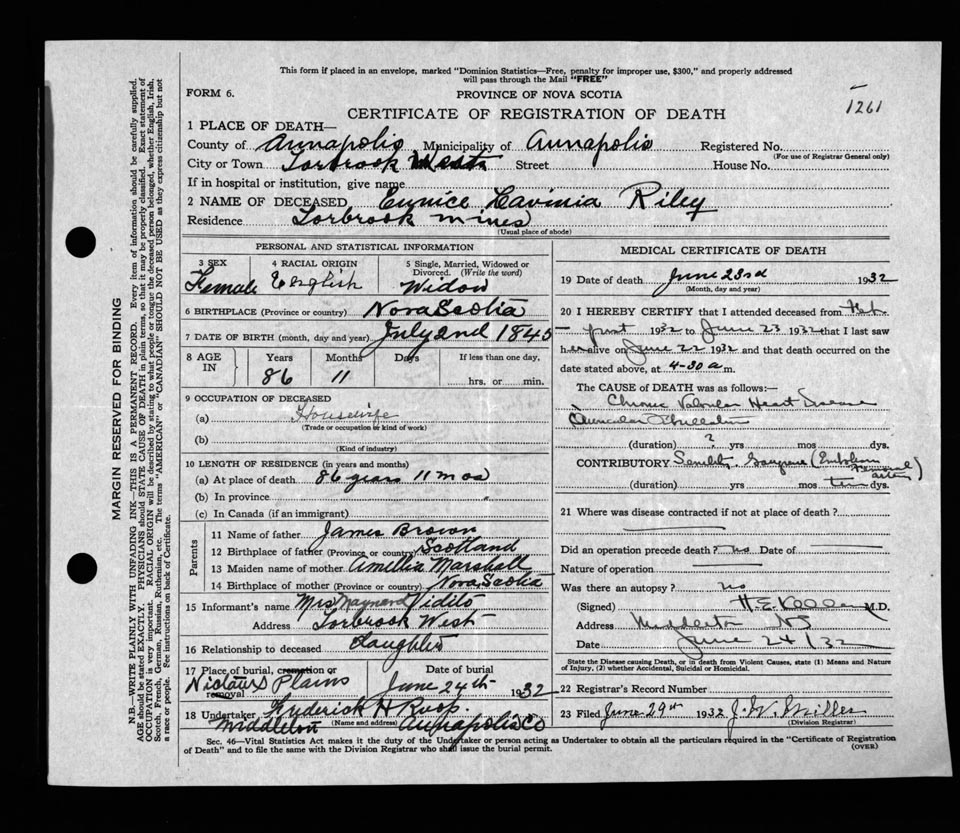 This form if placed in an envelope, marked "Dominion Statistics—Free, penalty for improper use, $300," and properly addressed
will pass through the Mail "FREE"
FORM 6.
PROVINCE OF NOVA SCOTIA
1261
CERTIFICATE OF REGISTRATION OF DEATH
1 PLACE OF DEATH—
County of Annapolis Municipality of Annapolis Registered No.
(For use of Registrar General only)
City or Town Torbrook West Street House No.
If in hospital or institution, give name
2 NAME OF DECEASED Eunice Lavinia Riley
Residence Torbrook Mines
(Usual place of abode)
PERSONAL AND STATISTICAL INFORMATION
3 SEX 4 RACIAL ORIGIN 5 Single, Married, Widowed or
Divorced. (Write the word)
Female English Widow
6 BIRTHPLACE (Province or country) Nova Scotia
7 DATE OF BIRTH (month, day and year) July 2nd 1845
8 AGE IN Years Months Days If less than one day,
86 11 hrs. or min.
9 OCCUPATION OF DECEASED
(a) Housewife
(Trade or occupation or kind of work)
(b)
(Kind of industry)
10 LENGTH OF RESIDENCE (in years and months)
(a) At place of death 86 years 11 mos
(b) In province "
(c) In Canada (if an immigrant)
Parents
11 Name of father James Brown
12 Birthplace of father (Province or country) Scotland
13 Maiden name of mother Amellia Marshall
14 Birthplace of mother (Province or country) Nova Scotia
15 Informant's name Mrs Maynard Vidito
Address Torbrook West
16 Relationship to deceased Daughter
17 Place of burial, cremation or removal Date of burial
Nictaux Plains June 24th 1932
18 Undertaker Frederick H Roop.
(Name and address)
Middleton Annapolis Co
MEDICAL CERTIFICATE OF DEATH
19 Date of death June 23rd 1932
(Month, day and year)
20 I HEREBY CERTIFY that I attended deceased from Feb.
1932 to June 23 1932 that I last saw
her alive on June 22 1932 and that death occurred on the
date stated above, at 4-30 a m.
The CAUSE OF DEATH was as follows:—
Chronic Valvular Heart Disease
Auricular Fibrillation
(duration) ? yrs mos dys.
CONTRIBUTORY Senility. Gangrene (Embolism
femoral artery)
(duration) yrs mos ten dys.
21 Where was disease contracted if not at place of death?
Did an operation precede death? no Date of
Nature of operation
Was there an autopsy? no
(Signed) M.D.
Address Middleton NS
Date June 24/32
State the Disease causing Death, or in death from Violent Causes, state (1) Means and Nature
of Injury, (2) whether Accidental, Suicidal or Homicidal.
22 Registrar's Record Number
23 Filed June 29th 1932
(Division Registrar)
Sec. 46—Vital Statistics Act makes it the duty of the Undertaker or person acting as Undertaker to obtain all the particulars required in the "Certificate of Registration
of Death" and to file the same with the Division Registrar who shall issue the burial permit.
(OVER)
MARGIN RESERVED FOR BINDING
N.B.—WRITE PLAINLY WITH UNFADING INK—THIS IS A PERMANENT RECORD. Every item of information should be carefully supplied.
AGE should be stated EXACTLY. PHYSICIANS should STATE CAUSE OF DEATH in plain terms, so that it may be properly classified. Exact statement of
OCCUPATION is very important. RACIAL ORIGIN will be described by stating to what people or tongue the deceased person belonged, whether English, Irish,
Scotch, French, German, Russian, Ruthenian, etc. The terms "AMERICAN" or "CANADIAN" SHOULD NOT BE USED as they express citizenship but not
a race or people. See instructions on back of Certificate.